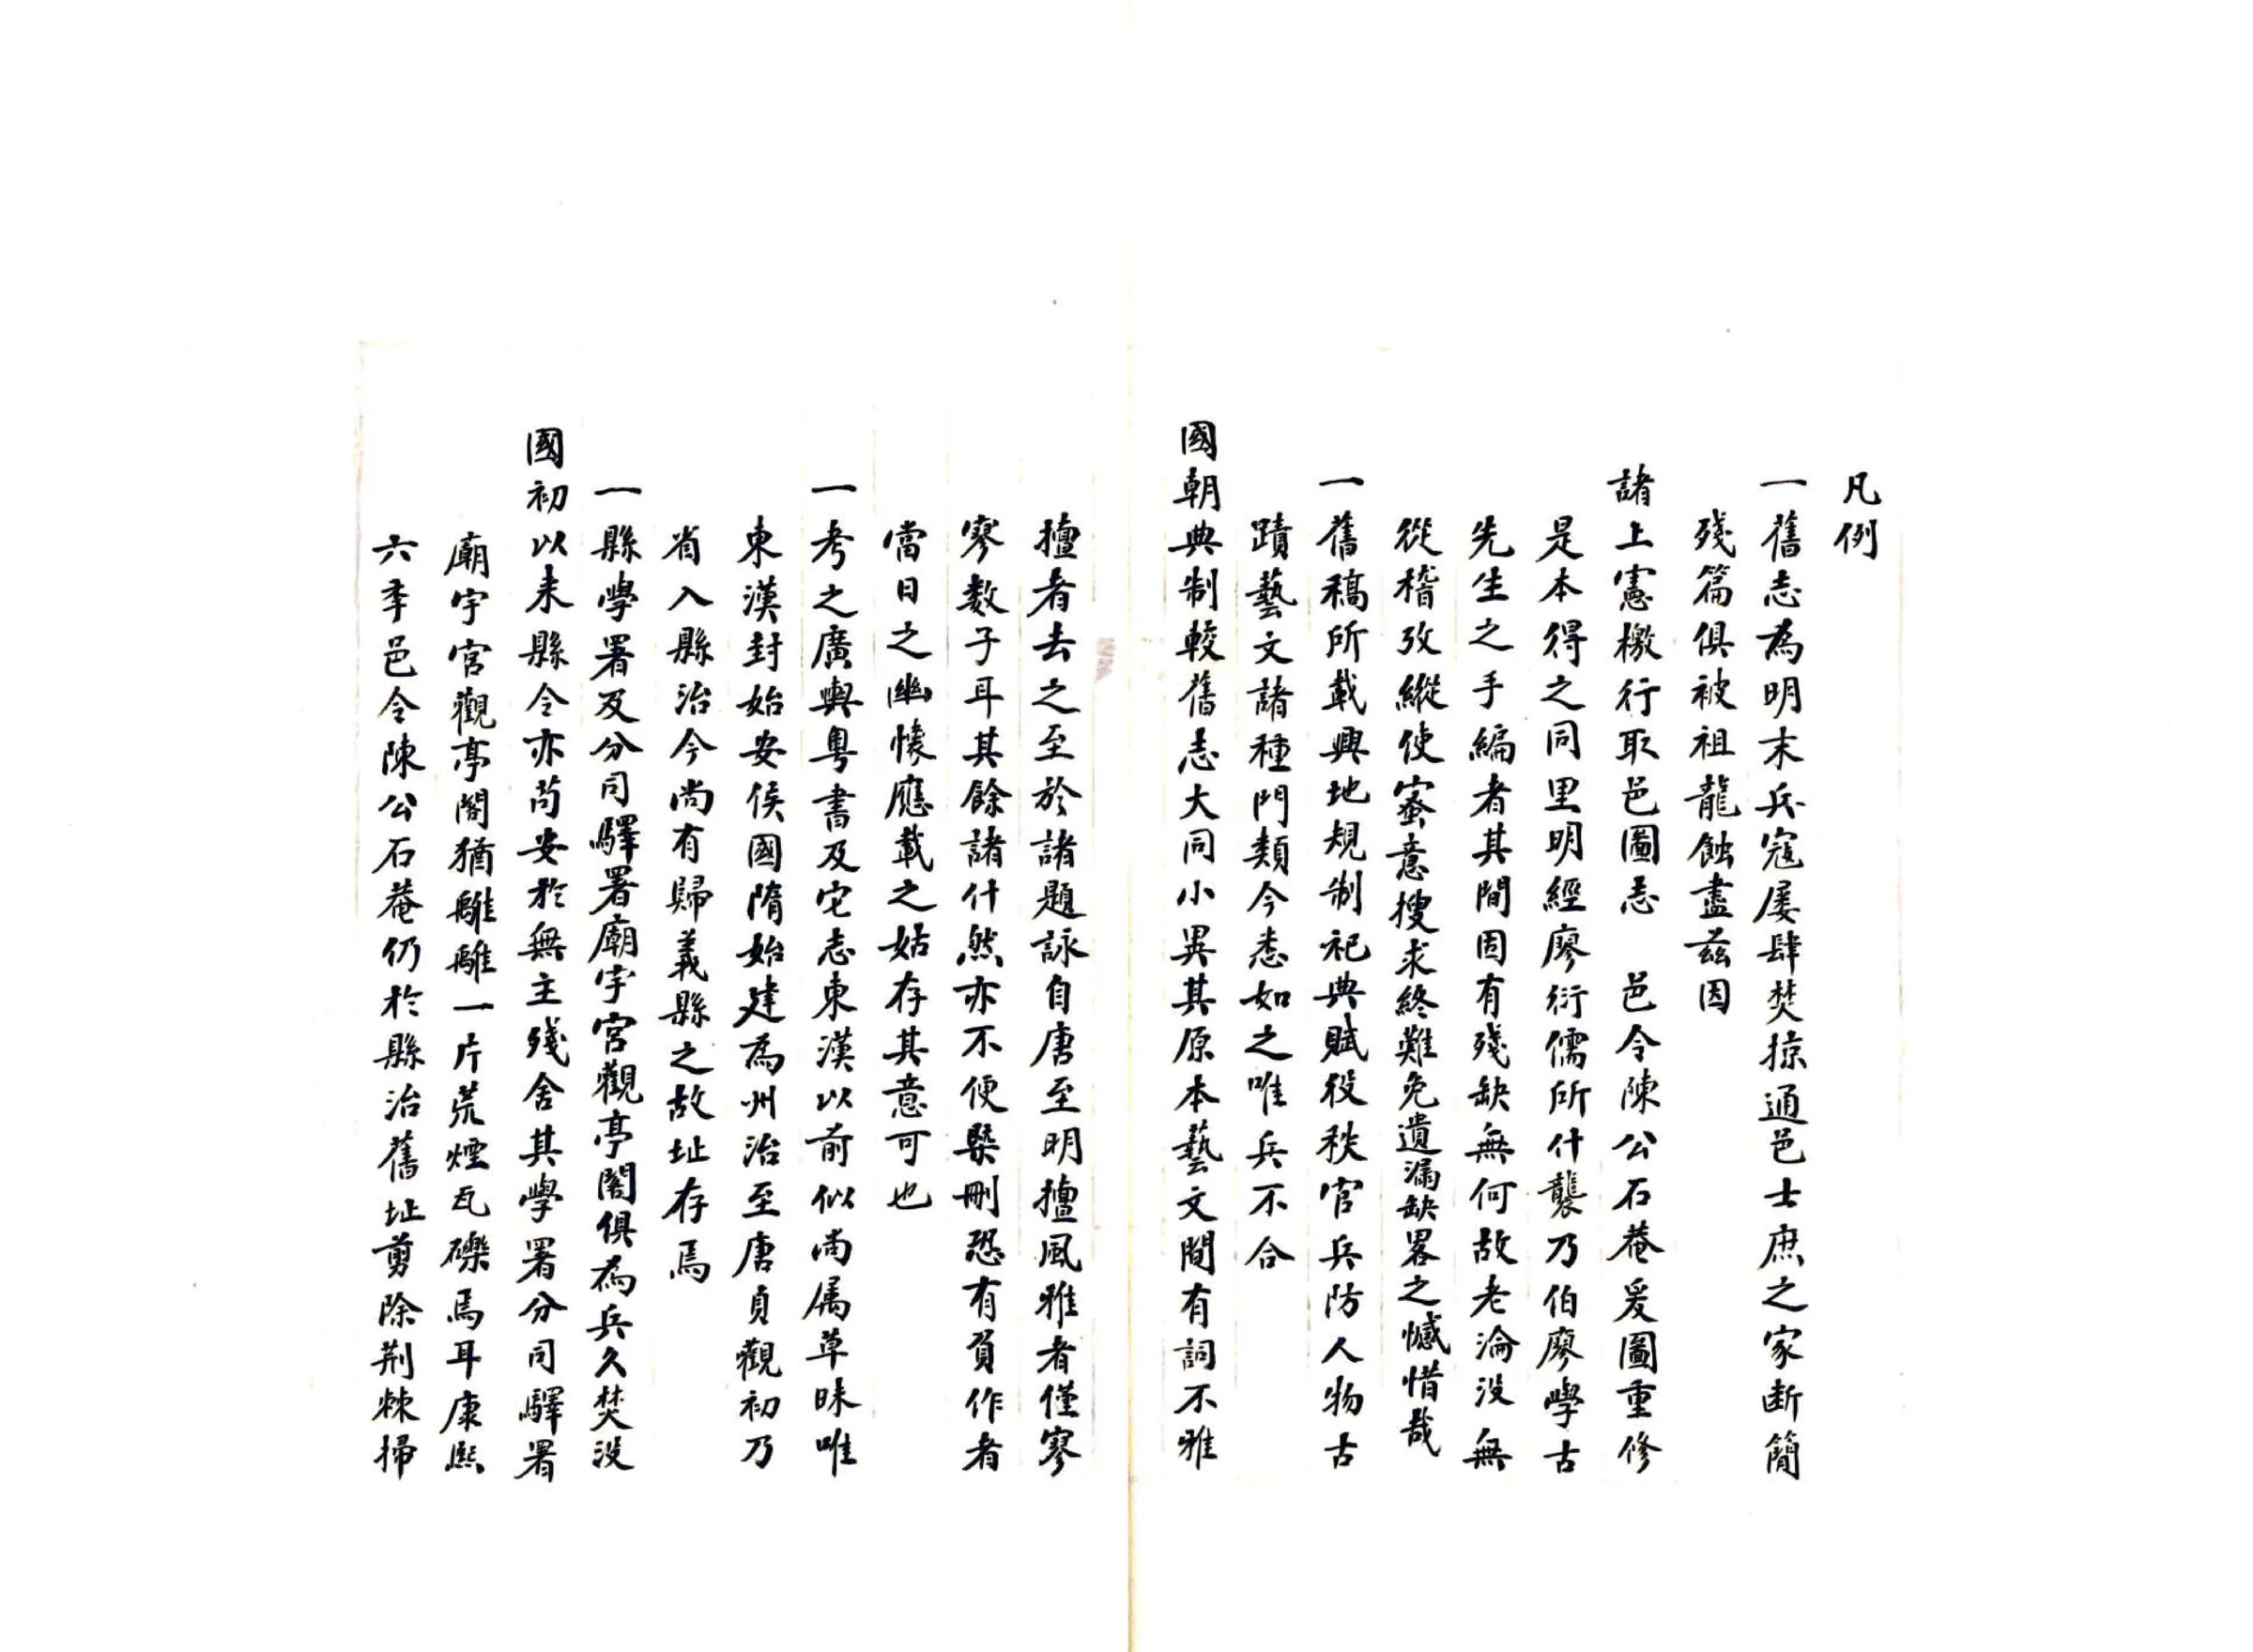 凡例
一舊志為明末兵寇屡肆焚掠通邑士庶之家断簡
殘篇俱被祖龍蝕盡兹因
諸上憲檄行取邑圖志　邑令陳公石菴爰圖重修
是本得之同里明經廖衍儒所什襲乃伯廖學古
先生之手編者其間固有殘缺無何故老淪没無
從稽攷縱使蜜意搜求終難免遺漏缺畧之憾惜哉
一舊稿所載輿地規制祀典賦役秩官兵防人物古
蹟藝文諸種門類今悉如之唯兵不合
國朝典制較舊志大同小異其原本藝文間有詞不雅
擅者去之至於諸題詠自唐至明擅風雅者僅寥
寥数子耳其餘諸什然亦不便槩刪恐有負作者
當日之幽懐應載之姑存其意可也
一考之廣輿粤書及它志東漢以前似尚属草昧唯
東漢封始安侯國隋始建為州治至唐貞觀初乃
省入縣治今尚有歸義縣之故址存焉
一縣學署及分司驛署廟宇宮觀亭閣俱為兵久焚没
國初以来縣令亦苟安於無主殘舍其學署分司驛署
廟宇宮觀亭閣猶離離一片荒煙瓦礫焉耳康熙
六季邑令陳公石菴仍於縣治舊址剪除荆棘掃